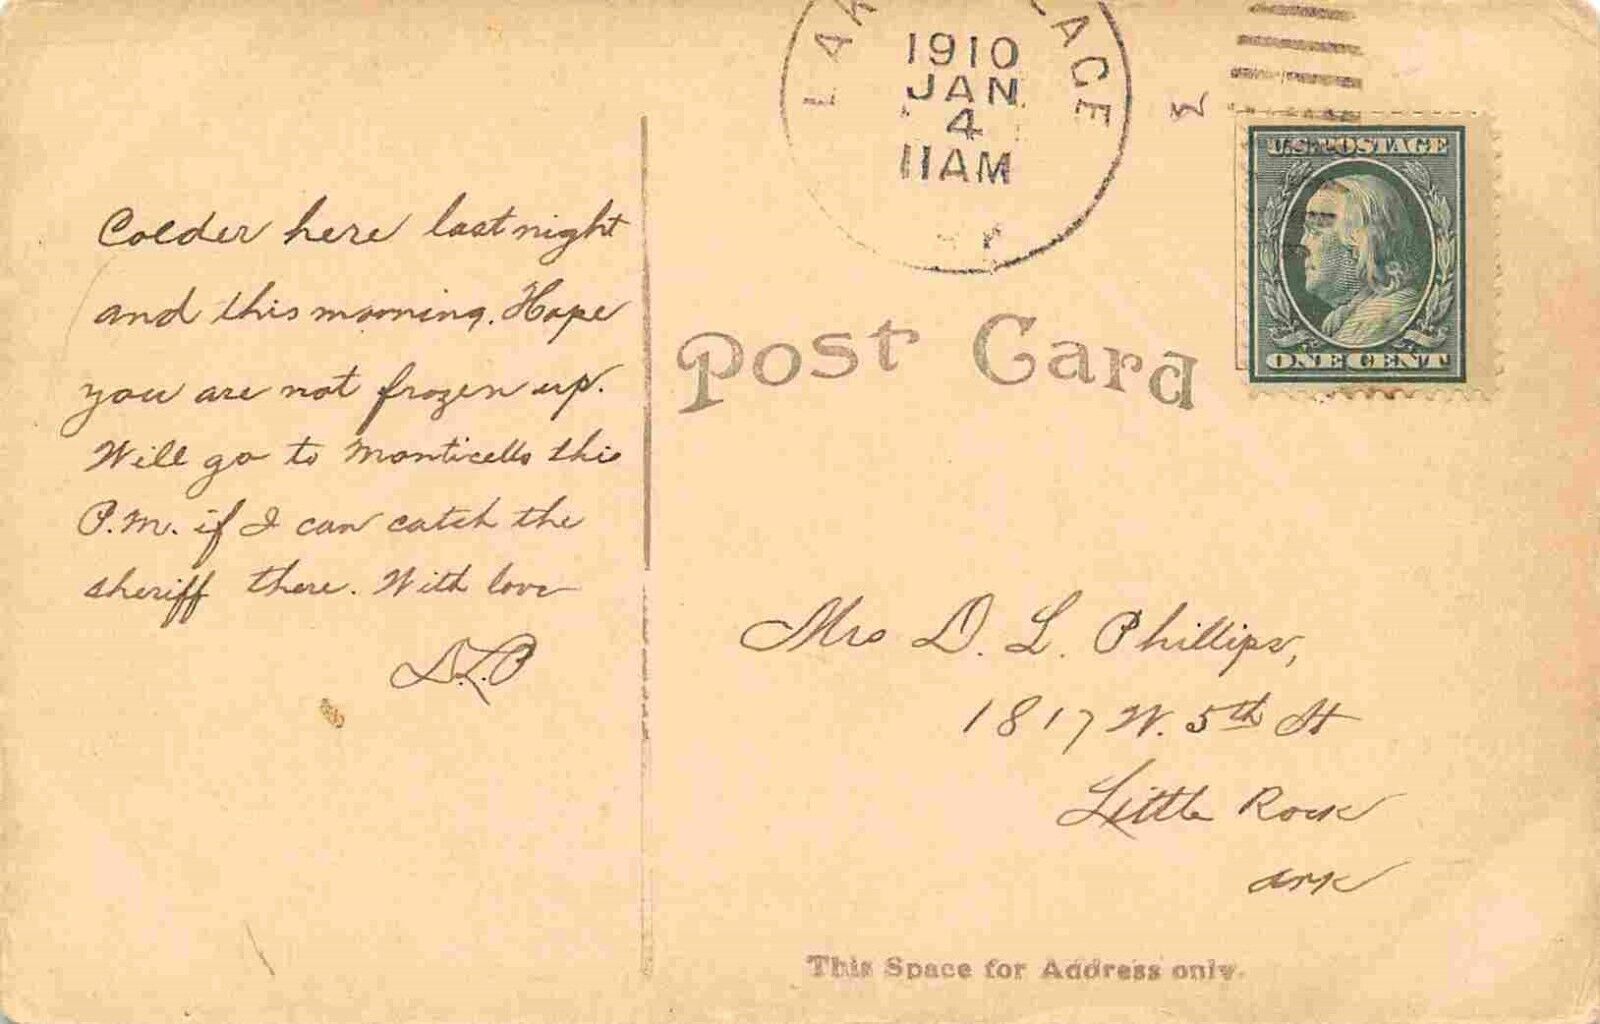 1910
JAN
4
11AM
U.S. POSTAGE
ONE CENT
Post Card
Colder here last night
and this morning. Hope
you are not frozen up.
Will go to Monticello this
P.M. if I can catch the
sheriff there. With love
D.L.P
Mrs D. L. Phillips,
1817 W. 5th St
Little Rock
Ark
This Space for Address only.